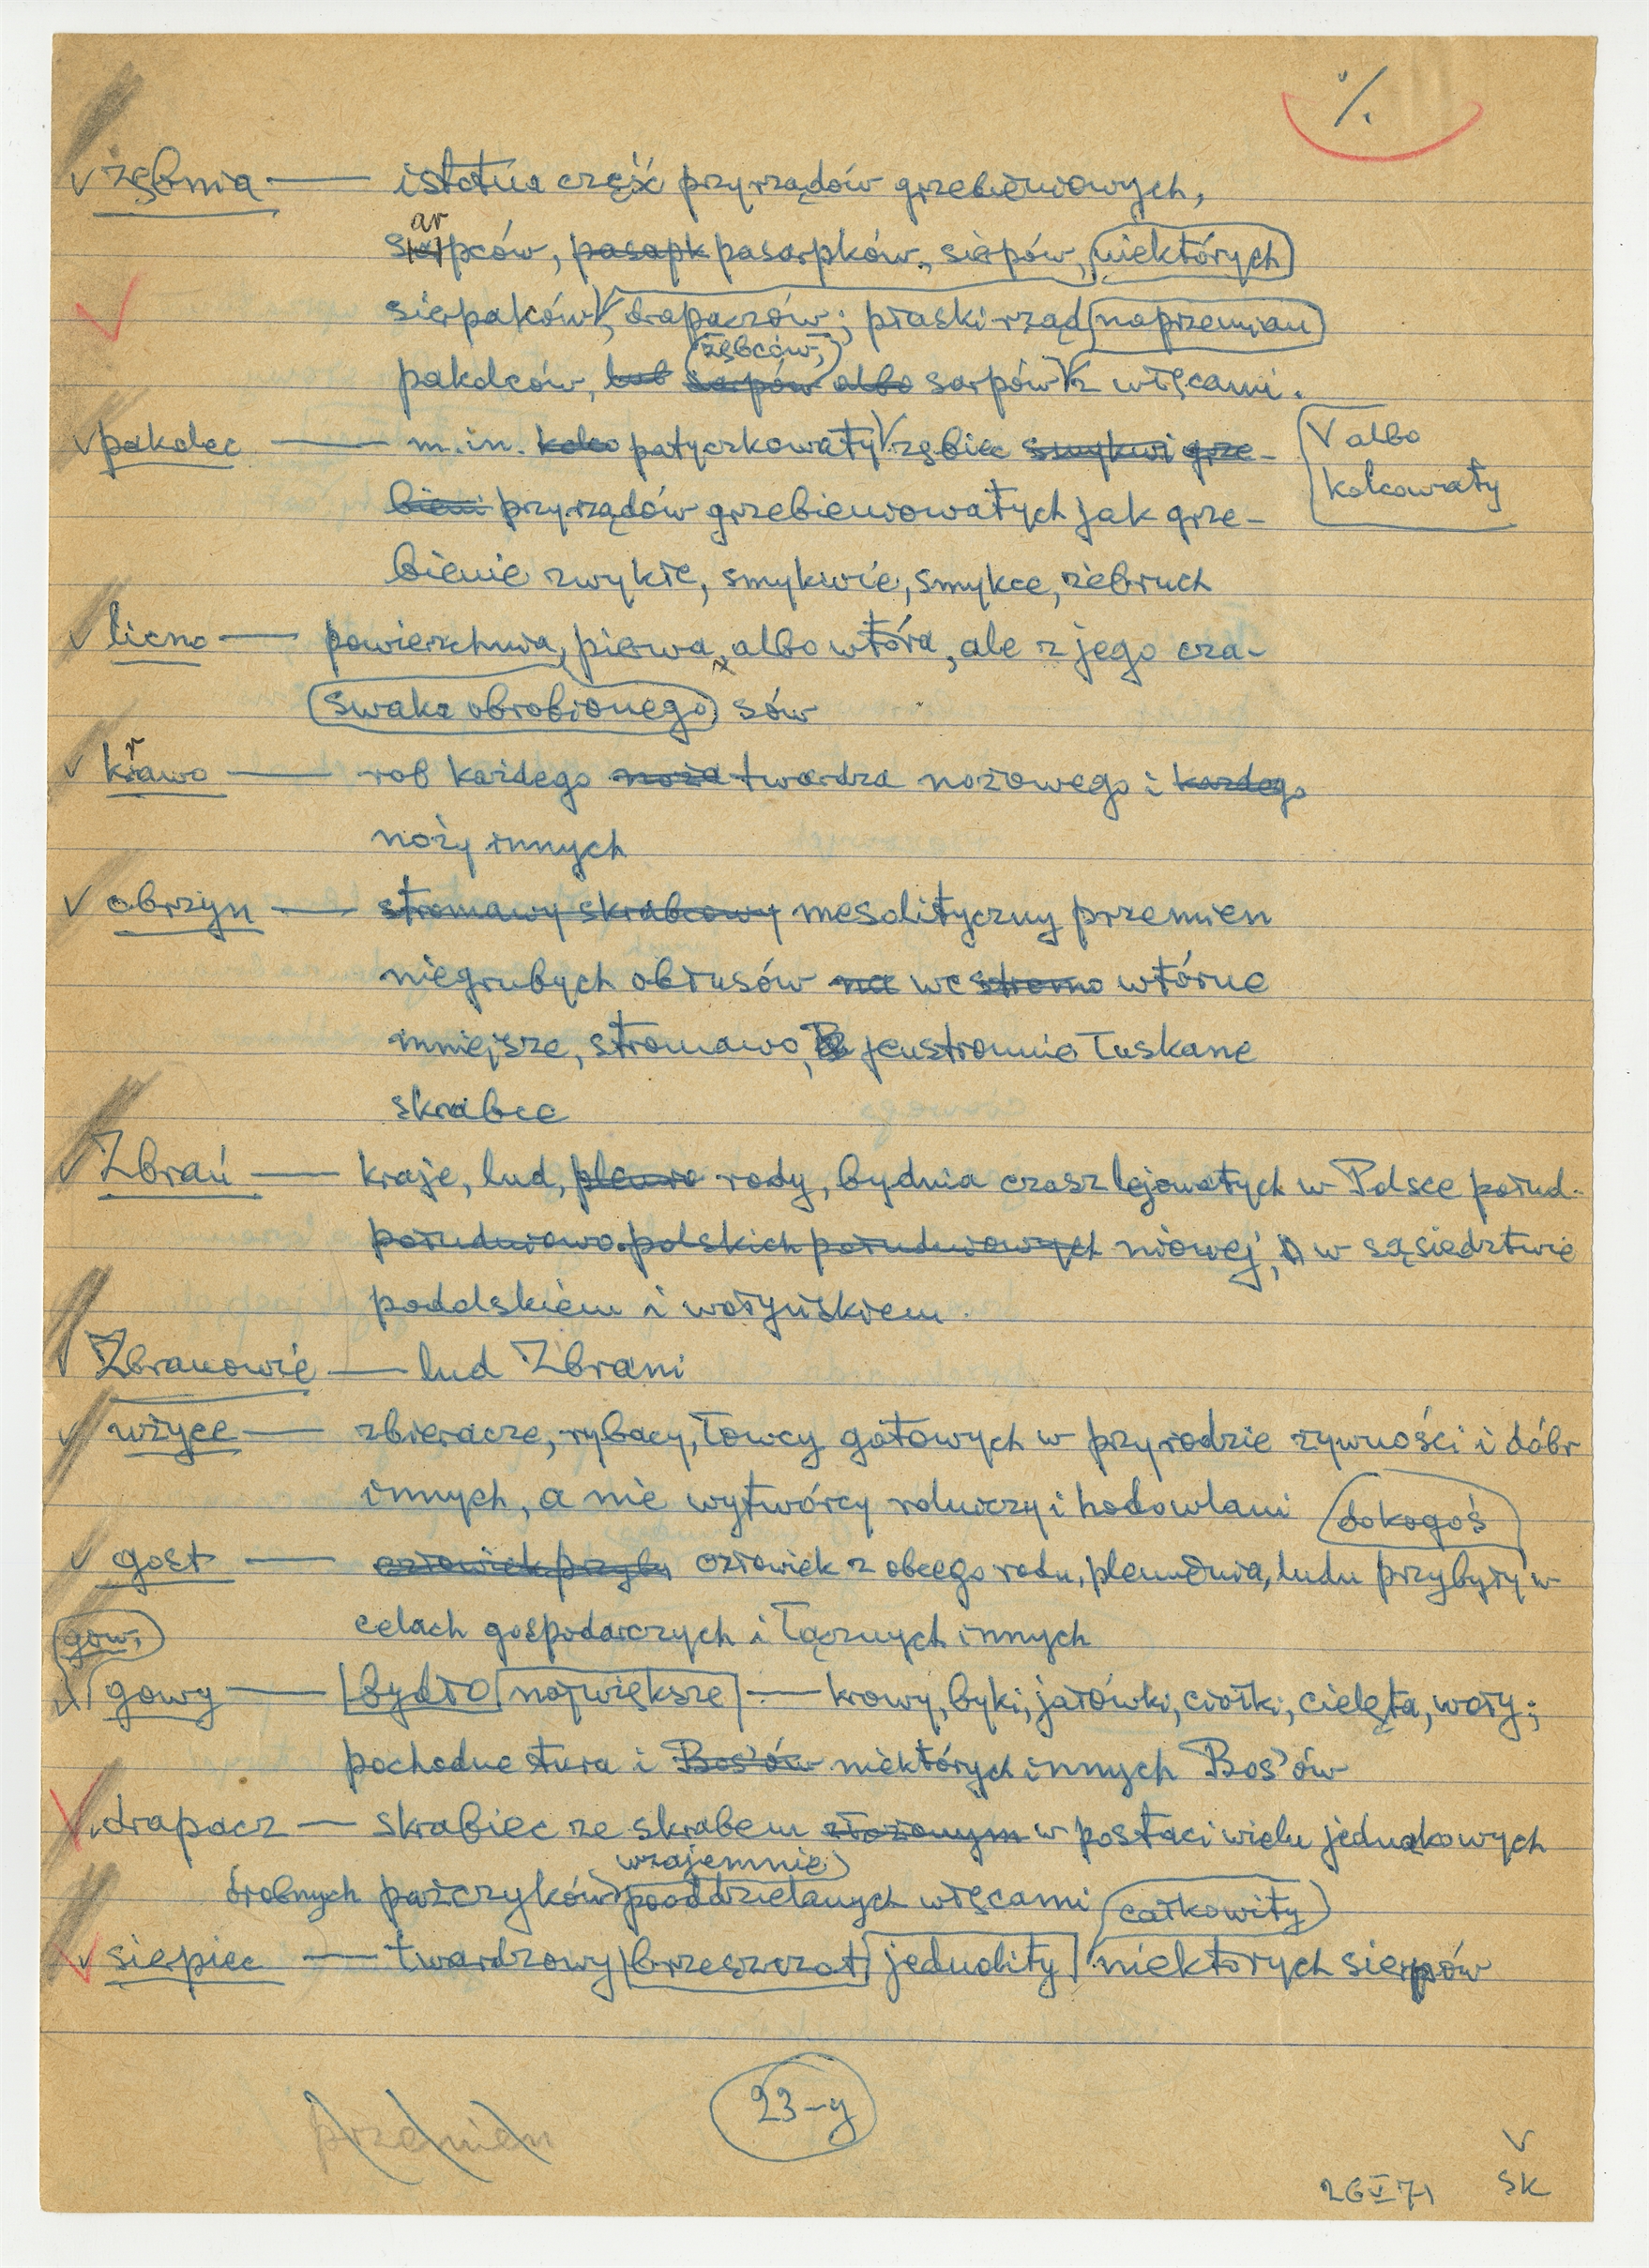 %
√ zębnia — istotna część przyrządów grzebieniowych,
ar
sapców, pasapk pasarpków, sierpów, niektórych
sierpaków √, drapaczów; płaski rząd naprzemian
zębców,
pakolców, lub sarpów albo sarpów √ z więcami.
√ pakolec — m.in. kolco patyczkowaty √ zębiec smykwi grze-
√ albo
kolcowaty
bieni przyrządów grzebieniowatych jak grze-
bienie zwykłe, smykwie, smykce, żebruch
√ licno — powierzchnia, pierwa, albo wtóra, ale z jego cza-
swaka obrobionego sów
r
√ kławo — rąb każdego noża twardza nożowego i każdego
noży innych
√ obrzyn — stromawy skrabcowy mesolityczny przemien
niegrubych obłusów na we stromo wtórne
mniejsze, stromawo, jenstronnie łuskane
skrabce
√ Zbrań — kraje, lud, plemio rody, bydnia czasz lejowatych w Polsce połud-
południowo-polskich południowych niowej, w sąsiedztwie
podolskiem i wołyńskiem.
√ Zbranowie — lud Zbrani
√ wżyce — zbieracze, rybacy, łowcy gotowych w przyrodzie żywności i dóbr
innych, a nie wytwórcy rolniczy i hodowlani
do kogoś
√ gost — człowiek przyby człowiek z obcego rodu, plemienia, ludu przybyły w
celach gospodarczych i łącznych innych
gow,
√ gowy — bydło największe — krowy, byki, jałówki, ciołki, cielęta, woły;
pochodne tura i Bos'ów niektórych innych Bos'ów
√ drapacz — skrabiec ze skrabem złożonym w postaci wielu jednakowych
wzajemnie
drobnych pazczyków pooddzielanych więcami
całkowity
√ sierpiec — twardzowy brzeszczot jednolity niektórych sierpów
23-y
przemien
26 V 71
√
SK